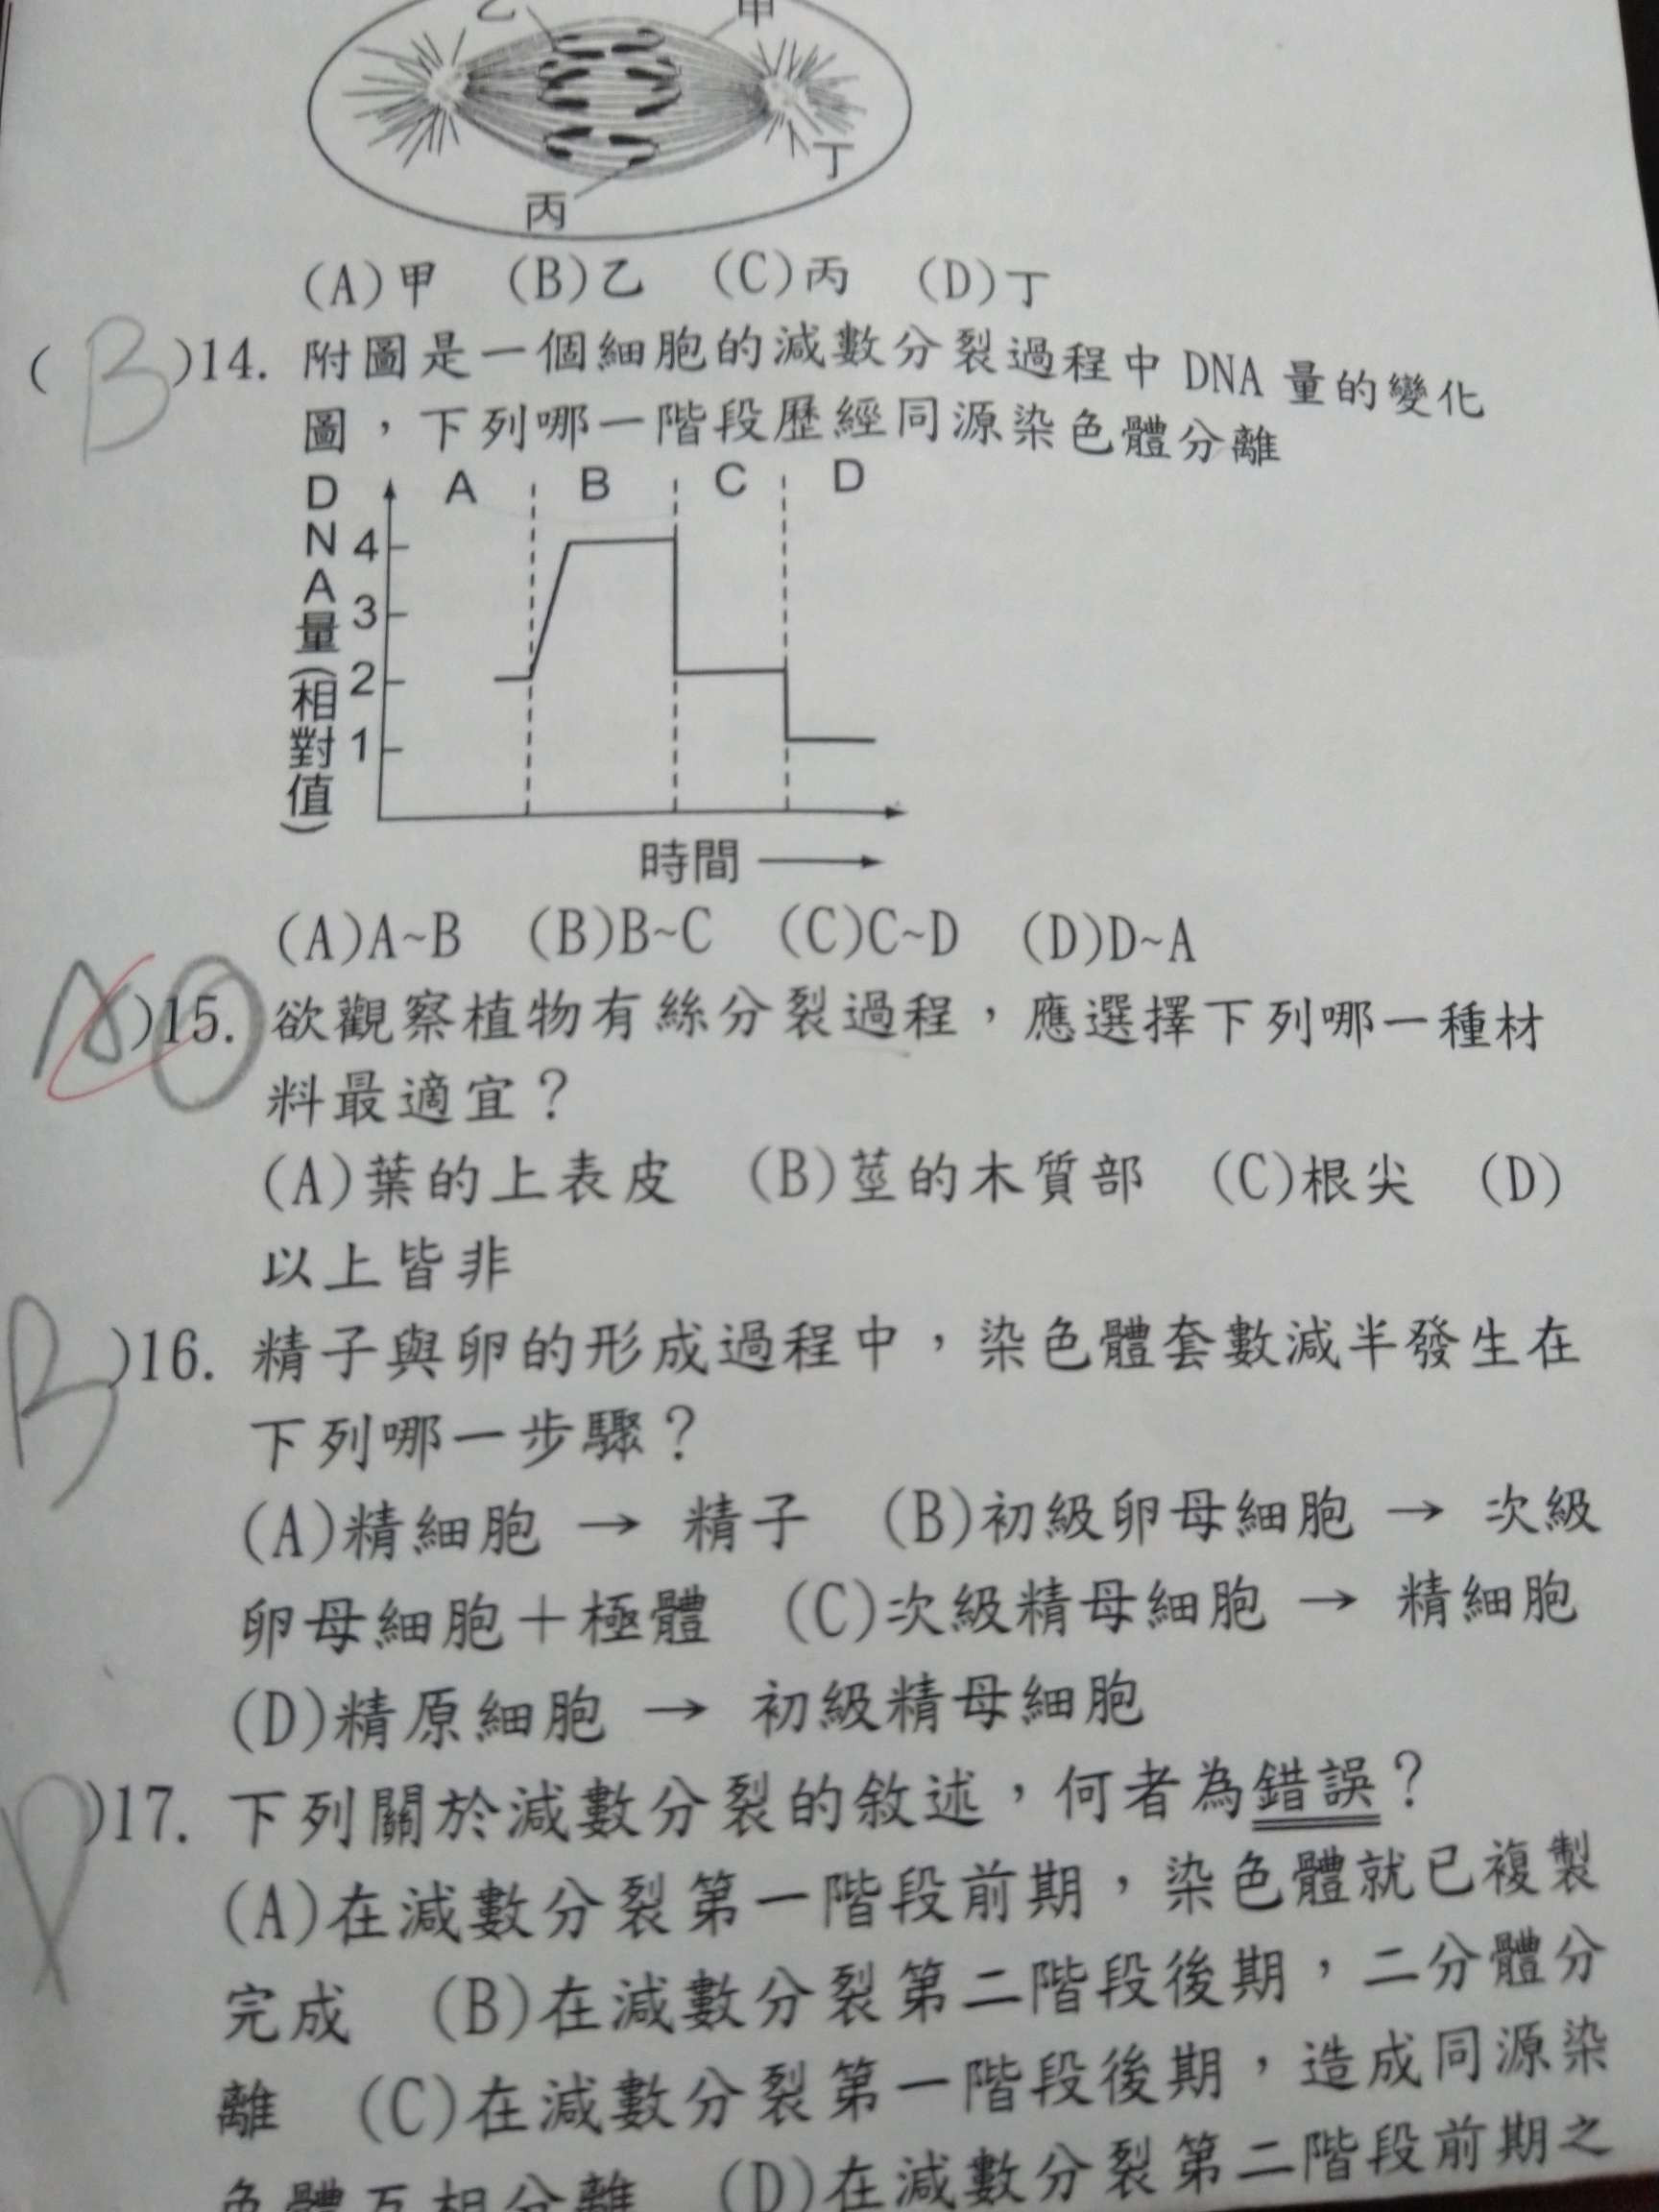 乙 甲
丁
丙
(A)甲 (B)乙 (C)丙 (D)丁
( B )14. 附圖是一個細胞的減數分裂過程中 DNA 量的變化
圖，下列哪一階段歷經同源染色體分離
A B C D
DNA量(相對值)
4
3
2
1
時間 →
(A)A~B (B)B~C (C)C~D (D)D~A
)15. 欲觀察植物有絲分裂過程，應選擇下列哪一種材
料最適宜？
(A)葉的上表皮 (B)莖的木質部 (C)根尖 (D)
以上皆非
B )16. 精子與卵的形成過程中，染色體套數減半發生在
下列哪一步驟？
(A)精細胞 → 精子 (B)初級卵母細胞 → 次級
卵母細胞＋極體 (C)次級精母細胞 → 精細胞
(D)精原細胞 → 初級精母細胞
)17. 下列關於減數分裂的敘述，何者為錯誤？
(A)在減數分裂第一階段前期，染色體就已複製
完成 (B)在減數分裂第二階段後期，二分體分
離 (C)在減數分裂第一階段後期，造成同源染
色體互相分離 (D)在減數分裂第二階段前期之